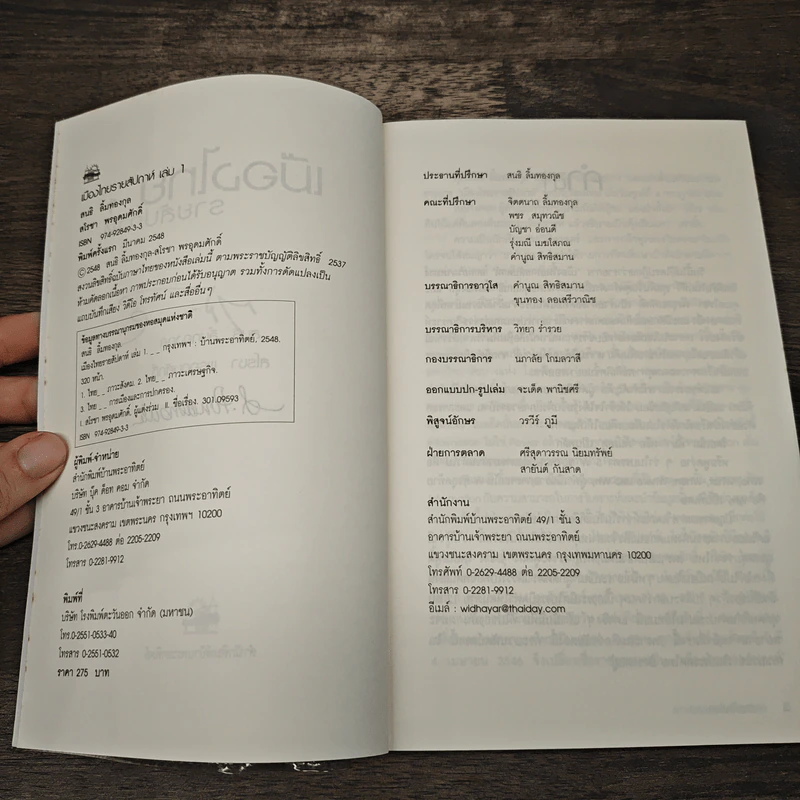 เมืองไทยรายสัปดาห์ เล่ม 1
สนธิ ลิ้มทองกุล
สโรชา พรอุดมศักดิ์
ISBN 974-92849-3-3
พิมพ์ครั้งแรก มีนาคม 2548
©2548 สนธิ ลิ้มทองกุล-สโรชา พรอุดมศักดิ์
สงวนลิขสิทธิ์ฉบับภาษาไทยของหนังสือเล่มนี้ ตามพระราชบัญญัติลิขสิทธิ์ 2537
ห้ามคัดลอกเนื้อหา ภาพประกอบก่อนได้รับอนุญาต รวมทั้งการดัดแปลงเป็น
แถบบันทึกเสียง วิดีโอ โทรทัศน์ และสื่ออื่นๆ
ข้อมูลทางบรรณานุกรมของหอสมุดแห่งชาติ
สนธิ ลิ้มทองกุล.
เมืองไทยรายสัปดาห์ เล่ม 1. _ _ กรุงเทพฯ : บ้านพระอาทิตย์, 2548.
320 หน้า.
1. ไทย_ _ ภาวะสังคม. 2. ไทย_ _ ภาวะเศรษฐกิจ.
3. ไทย _ _ การเมืองและการปกครอง.
I. สโรชา พรอุดมศักดิ์, ผู้แต่งร่วม II. ชื่อเรื่อง. 301.09593
ISBN 974-92849-3-3
ผู้พิมพ์-จำหน่าย
สำนักพิมพ์บ้านพระอาทิตย์
บริษัท บุ๊ค ด็อท คอม จำกัด
49/1 ชั้น 3 อาคารบ้านเจ้าพระยา ถนนพระอาทิตย์
แขวงชนะสงคราม เขตพระนคร กรุงเทพฯ 10200
โทร.0-2629-4488 ต่อ 2205-2209
โทรสาร 0-2281-9912
พิมพ์ที่
บริษัท โรงพิมพ์ตะวันออก จำกัด (มหาชน)
โทร.0-2551-0533-40
โทรสาร 0-2551-0532
ราคา 275 บาท
ประธานที่ปรึกษา สนธิ ลิ้มทองกุล
คณะที่ปรึกษา จิตตนาถ ลิ้มทองกุล
พชร สมุทวณิช
บัญชา อ่อนดี
รุ่งมณี เมฆโสภณ
คำนูณ สิทธิสมาน
บรรณาธิการอาวุโส คำนูณ สิทธิสมาน
ขุนทอง ลอเสรีวานิช
บรรณาธิการบริหาร วิทยา ร่ำรวย
กองบรรณาธิการ นภาลัย โกมลวาสี
ออกแบบปก-รูปเล่ม จะเด็ด พานิชศรี
พิสูจน์อักษร วรวีร์ ภูมี
ฝ่ายการตลาด ศรีสุดาวรรณ นิยมทรัพย์
สายันต์ กันสาด
สำนักงาน
สำนักพิมพ์บ้านพระอาทิตย์ 49/1 ชั้น 3
อาคารบ้านเจ้าพระยา ถนนพระอาทิตย์
แขวงชนะสงคราม เขตพระนคร กรุงเทพมหานคร 10200
โทรศัพท์ 0-2629-4488 ต่อ 2205-2209
โทรสาร 0-2281-9912
อีเมล์ : widhayar@thaiday.com